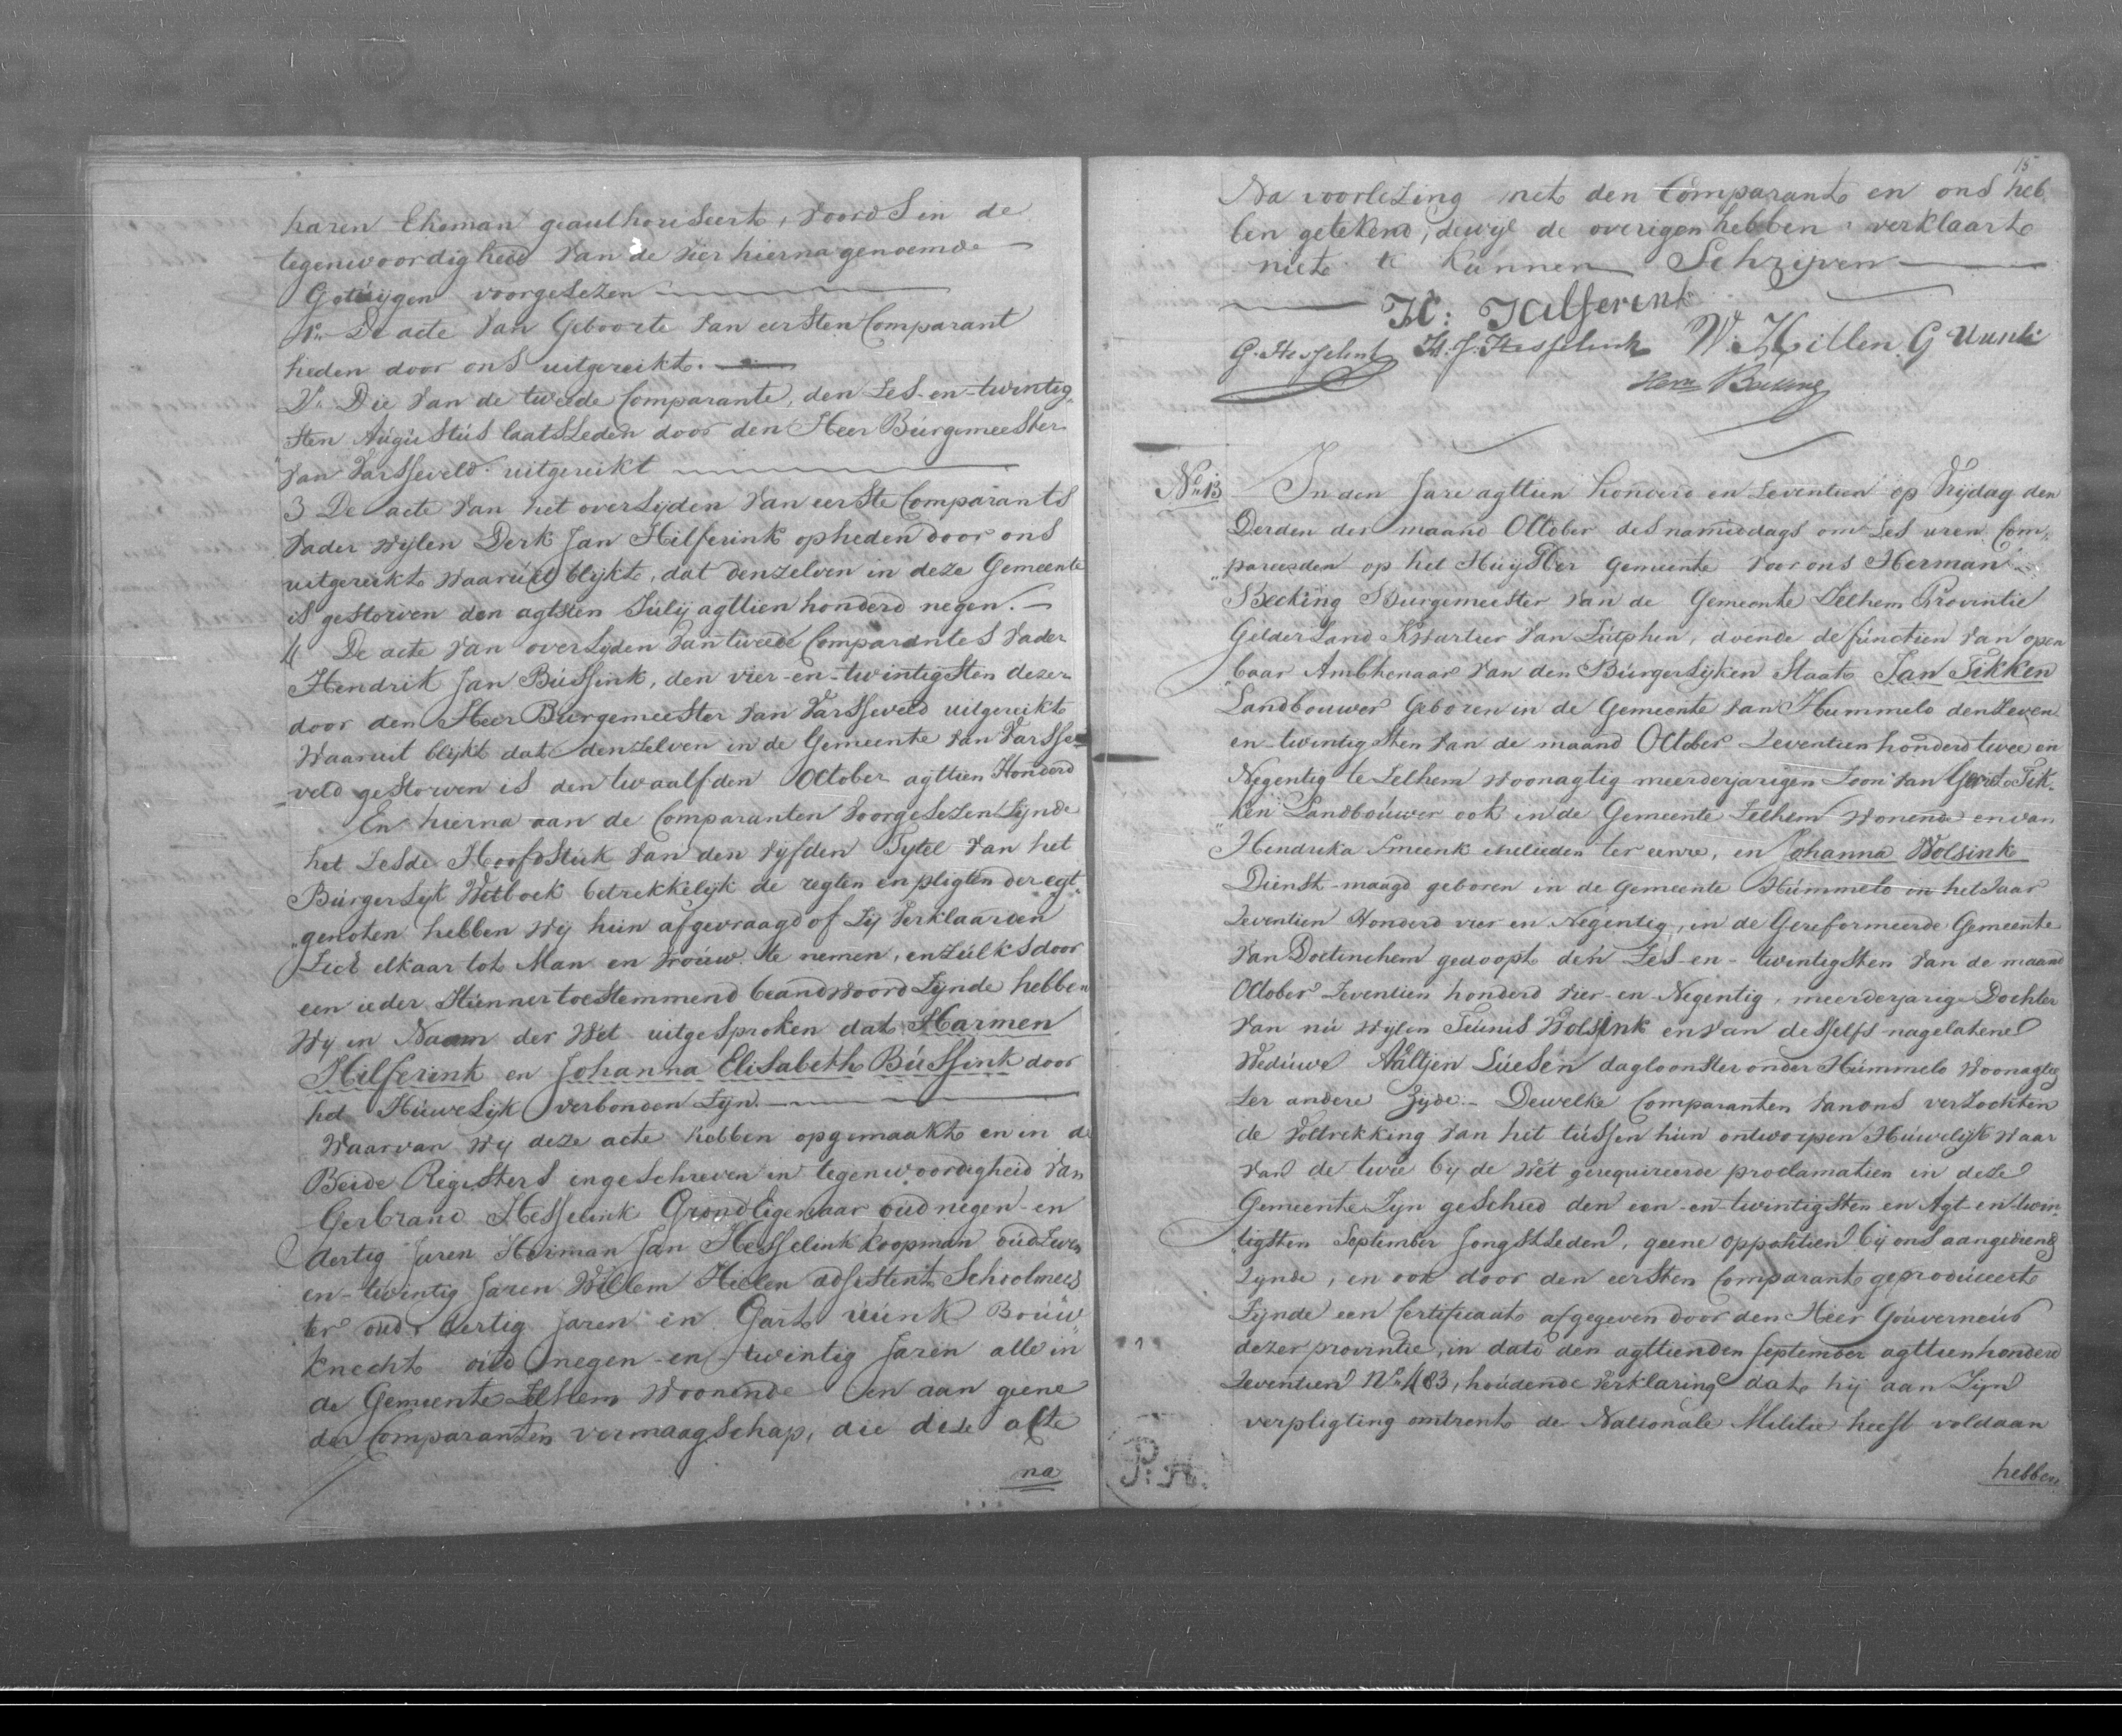 haren Eheman geauthoriseert, voords in de
tegenwoordigheid van de vier hierna genoemde
Getuijgen voorgelezen
1o De acte van Geboorte van eersten Comparant
heden door ons uitgereikt.
2o Die van de tweede Comparante, den Zes-en-twintig-
sten Augustus laatstleden door den Heer Burgemeester
van Varsseveld uitgereikt
3 De acte van het overlijden van eerste Comparants
Vader wijlen Derk Jan Hilferink op heden door ons
uitgereikt waaruit blijkt, dat denzelven in deze Gemeente
is gestorven den agtsten Julij agttien honderd negen.
4 De acte van overlijden van tweede Comparantes Vader
Hendrik Jan Bussink, den vier-en-twintigsten dezer
door den Heer Burgemeester van Varsseveld uitgereikt
Waaruit blijkt dat denzelven in de Gemeente van Varsse-
veld gestorven is den twaalfden October agttien Honderd
En hierna aan de Comparanten voorgelezen Zijnde
het Zesde Hoofdstuk van den vijfden Tytel van het
Burgerlijk Wetboek betrekkelijk de regten en pligten der egt-
genoten hebben wij hun afgevraagd of Zij verklaarden
Zich elkaar tot Man en vrouw te nemen, en zulks door
een ieder Hunner toestemmend beandwoord Zijnde hebben
Wij in Naam der Wet uitgesproken dat Harmen
Hilferink en Johanna Elisabeth Bussink door
het Huwelijk verbonden Zijn.
Waarvan Wij deze acte hebben opgemaakt en in de
Beide Registers ingeschreven in tegenwoordigheid van
Gerbrand Hesselink Grond Eigenaar oud negen-en
dertig Jaren Herman Jan Hesselink koopman oud Zeven
en-twintig Jaren Willem Hillen adsistent Schoolmees
ter oud dertig Jaren en Gart uunk Bouw
knecht oud negen-en-twintig Jaren alle in
de Gemeente Zelhem Woonende en aan geene
der Comparanten vermaagschap, die deze acte
na
15
Na voorlezing met den Comparant en ons heb
ben getekend, dewijl de overigen hebben verklaart
niet te kunnen Schrijven
H: Hilferink
G. Hesselink H. J. Hesselink W. Hillen G Uunk
Herm Becking
No 13 In den Jare agttien honderd en Zeventien op Vrijdag den
Derden der maand October des namiddags om Zes uren Com-
pareerden op het Huijs der Gemeente voor ons Herman
Becking Burgemeester van de Gemeente Zelhem Provintie
Gelderland Kwartier van Zutphen, doende de functien van open
baar Ambtenaar van den Burgerlijken Staat Jan Tikken
Landbouwer Geboren in de Gemeente van Hummelo den Zeven
en-twintigsten van de maand October Zeventien honderd twee en
Negentig te Zelhem woonagtig meerderjarigen Zoon van Gerrit Tik-
ken Landbouwer ook in de Gemeente Zelhem Wonende en van
Hendrika Smeenk ehelieden ter eenre, en Johanna Wolsink
Dienst-maagd geboren in de Gemeente Hummelo in het Jaar
Zeventien Honderd vier en Negentig, in de Gereformeerde Gemeente
van Doetinchem gedoopt den Zes-en-twintigsten van de maand
October Zeventien honderd vier-en-Negentig, meerderjarige Dochter
van nu wijlen Teunis Wolsink en van desselfs nagelatene
Weduwe Aaltjen Luesen dagloonster onder Hummelo woonagtig
ter andere Zijde.- Dewelke Comparanten van ons verzochten
de Voltrekking van het tussen hun ontworpen Huwelijk waar
van de twee bij de Wet gerequireerde proclamatien in deze
Gemeente Zijn geschied den een-en-twintigsten en Agt-en-twin
tigsten September Jongstleden, geene oppositien bij ons aangediend
zijnde, en ook door den eersten Comparant geproduceert
Zijnde een Certificaat afgegeven door den Heer Gouverneur
dezer provintie, in dato den agttienden September agttienhonderd
Zeventien No 483, houdende verklaring dat hij aan Zijn
verpligting omtrent de Nationale Militie heeft voldaan
hebben
P:A.